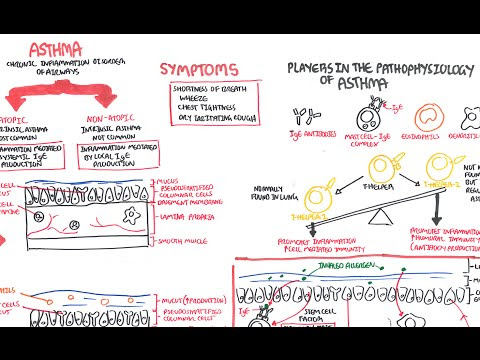 ASTHMA
CHRONIC INFLAMMATION DISORDER
OF AIRWAYS
ATOPIC
TRINSIC ASTHMA
OST COMMON
NFLAMMATION MEDIATED
SYSTEMIC IgE
PRODUCTION
NON-ATOPIC
INTRINSIC ASTHMA
NOT COMMON
INFLAMMATION MEDIATED
BY LOCAL IgE
PRODUCTION
SYMPTOMS
SHORTNESS OF BREATH
WHEEZE
CHEST TIGHTNESS
DRY IRRITATING COUGH
PLAYERS IN THE PATHOPHYSIOLOGY
OF ASTHMA
IgE ANTIBODIES
IgE
MAST CELL-IgE
COMPLEX
EOSINOPHILS
DENDRITIC
NORMALLY
FOUND IN LUNG
T-HELPER
T-HELPER-1
T-HELPER-2
NOT N
FOU
BUT
REGU
AS
PROMOTES INFLAMMATION
CELL MEDIATED IMMUNITY
PROMOTES INFLAMMAT
HUMORAL IMMUNITY
(ANTIBODY PRODUCTION
CELL
MUCUS
PSEUDOSTRATIFIED
COLUMNAR CELLS
BASEMENT MEMBRANE
LAMINA PROPRIA
SMOOTH MUSCLE
MUCUS (↑PRODUCTION)
PSEUDOSTRATIFIED
COLUMNAR CELLS
INHALED ALLERGEN
IgE
STEM CELL
FACTOR